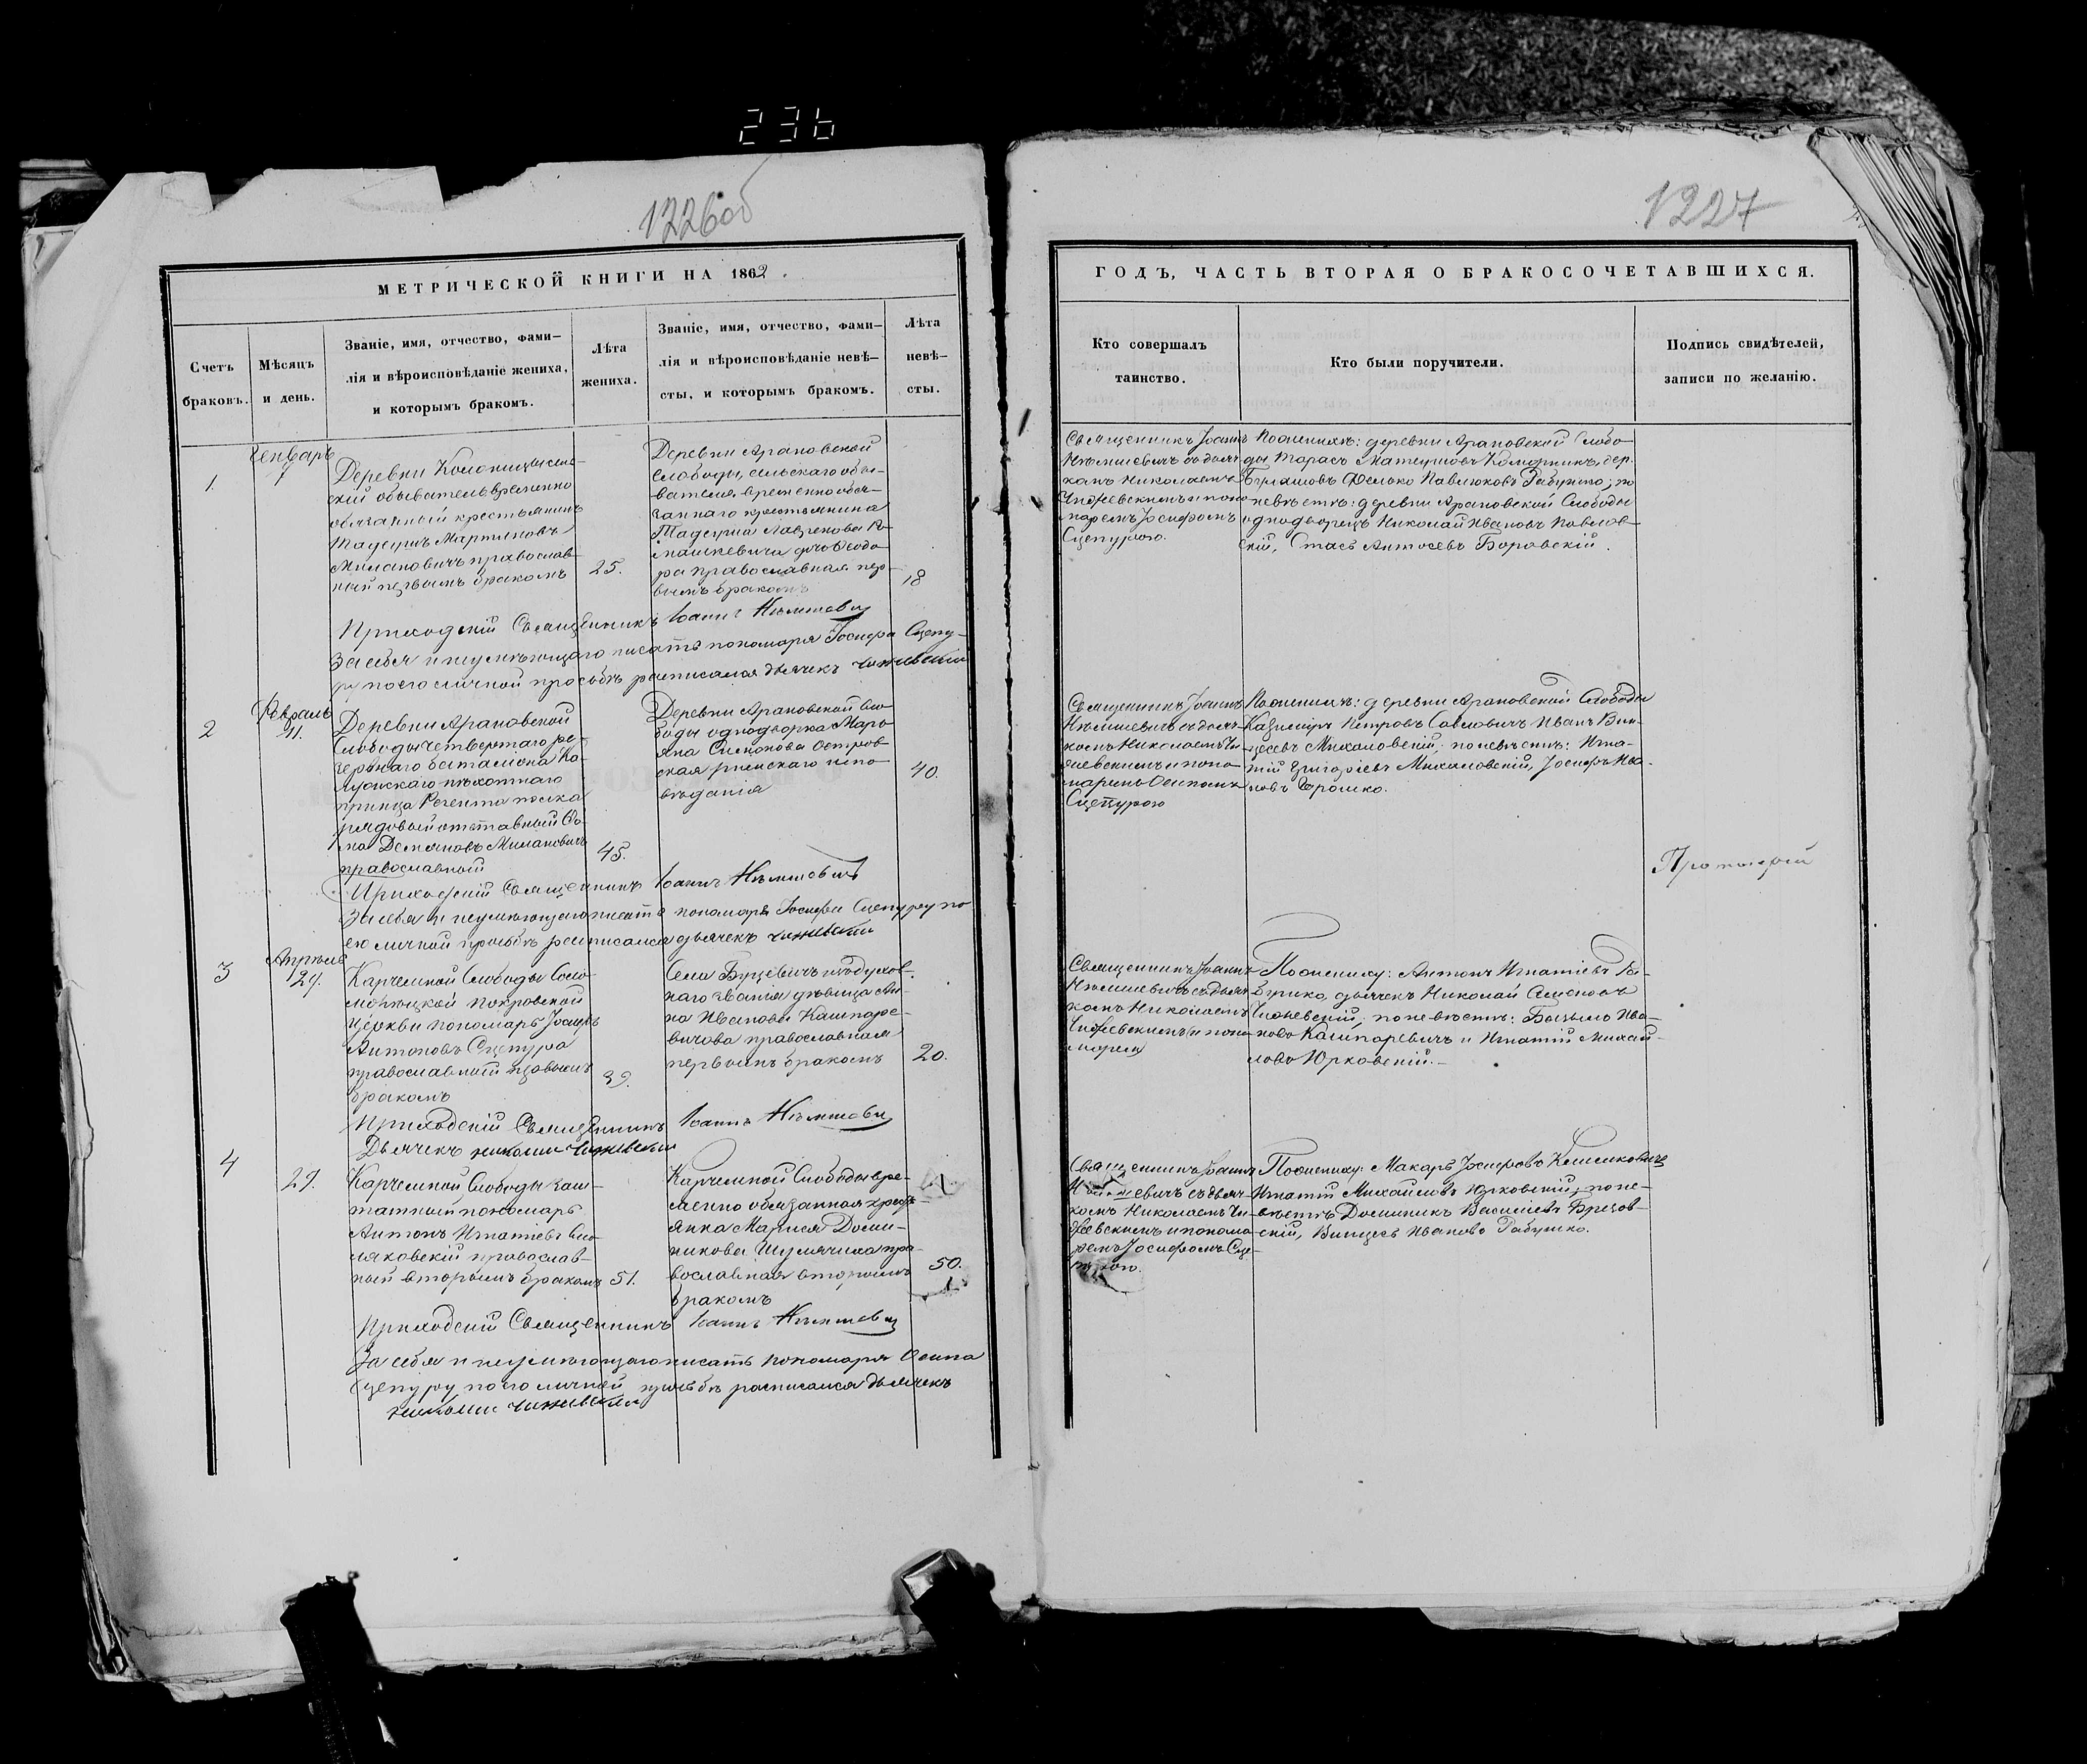 236
1226об
МЕТРИЧЕСКОЙ КНИГИ НА 1862.
Счетъ
браковъ.
Мѣсяцъ
и день.
Званіе, имя, отчество, фами-
лія и вѣроисповѣданіе жениха,
и которымъ бракомъ.
Лѣта
жениха.
Званіе, имя, отчество, фами-
лія и вѣроисповѣданіе невѣ-
сты, и которымъ бракомъ.
Лѣта
невѣ-
сты.
1.
Генварь
7
Деревни
скій обыватель временно
обязанный крестьянинъ
Тадеушъ Мартиновъ
Милановичъ православ-
ный первымъ бракомъ
25.
Деревни Арановской
Слободы, сельскаго обы-
вателя временно обя-
заннаго крестьянина
Тадеуша Лавренова Ро-
машкевича дочь Ѳеодо-
ра православная пер-
вымъ бракомъ
18
Приходскій Священникъ Іоаннъ Нѣмшевич
За себя и неумѣющаго писать пономаря Іосифа Сцепу-
ру по его личной просьбѣ расписался дьячекъ Чижевскій
2
Февраль
11.
Деревни Арановской
Слободы четвертаго ре-
зервнаго баталіона Ка-
лужскаго пѣхотнаго
принца Регента полка
рядовый отставный Ѳо-
ма Демяновъ Милановичъ
православный
45.
Деревни Арановской Сло-
боды однодворка Марь-
яна Симонова Остров-
ская римскаго испо-
вѣданія
40.
Приходскій Священникъ Іоаннъ Нѣмшевичъ
За себя и неумѣющаго писать пономаря Іосифа Сцепуру по
его личной просьбѣ расписался дьячекъ Чижевскій
3
Апрѣль
29.
Карчемной Слободы Сло-
Покровской
церкви пономарь Іосифъ
Антоновъ Сцепура
православный первымъ
бракомъ
39.
Села Буцевичъ духов-
наго званія дѣвица Ан-
на Иванова Кашпаре-
вичова православная
первымъ бракомъ
20.
Приходскій Священникъ Іоаннъ Нѣмшевич
Дьячекъ Николай Чижевскій
4
29.
Карчемной Слободы заш-
татный пономарь
Антонъ Игнатіевъ
православ-
ный вторымъ бракомъ
51.
Карчемной Слободы вре-
менно обязанная кресть-
янка Марися Доми-
никова Шумячиха пра-
вославная вторымъ
бракомъ
50.
Приходскій Священникъ Іоаннъ Нѣмшевич
За себя и неумѣющаго писать пономаря Осипа
Сцепуру по его личной просьбѣ расписался дьячекъ
Николай Чижевскій
1227
ГОДЪ, ЧАСТЬ ВТОРАЯ О БРАКОСОЧЕТАВШИХСЯ.
Кто совершалъ
таинство.
Кто были поручители.
Подпись свидѣтелей,
записи по желанію.
Священникъ Іоаннъ
Нѣмшевичъ съ дьяч-
комъ Николаемъ
Чижевскимъ и поно-
маремъ Іосифомъ
Сцепурою.
По женихѣ: деревни Арановской Слобо-
ды Тарасъ Матеушовъ Коморникъ, дер.
Павлюковъ Рабушко; по
невѣстѣ: деревни Арановской Слободы
однодворецъ Николай Ивановъ Павлов-
скій, Стасъ Антосевъ Боровскій.
Священникъ Іоаннъ
Нѣмшевичъ съ дьяч-
комъ Николаемъ Чи-
жевскимъ и поно-
маремъ Осипомъ
Сцепурою
По женихѣ: деревни Арановской Слободы
Казиміръ Петровъ Савловичъ Иванъ Вин-
цесевъ Михаловскій, по невѣстѣ: Игна-
тій Григоріевъ Михаловскій, Іосифъ Ива-
новъ Ярошко.
Священникъ Іоаннъ
Нѣмшевичъ съ дьяч-
комъ Николаемъ
Чижевскимъ и поно-
марем
По жениху: Антонъ Игнатіевъ
дьячекъ Николай Семеновъ
Чижевскій, по невѣстѣ: Ива-
новъ Кашпаревичъ и Игнатій Михай-
ловъ Юрковскій.
Священникъ Іоаннъ
Нѣмшевичъ съ дьяч-
комъ Николаемъ Чи-
жевскимъ и понома-
ремъ Іосифомъ Сце-
пурою.
По жениху: Макаръ Іосифовъ
Игнатій Михайловъ Юрковскій, по не-
вѣстѣ Доминикъ Василіевъ Брезов-
скій, Винцесь Ивановъ Рабушко.
Протоіерей